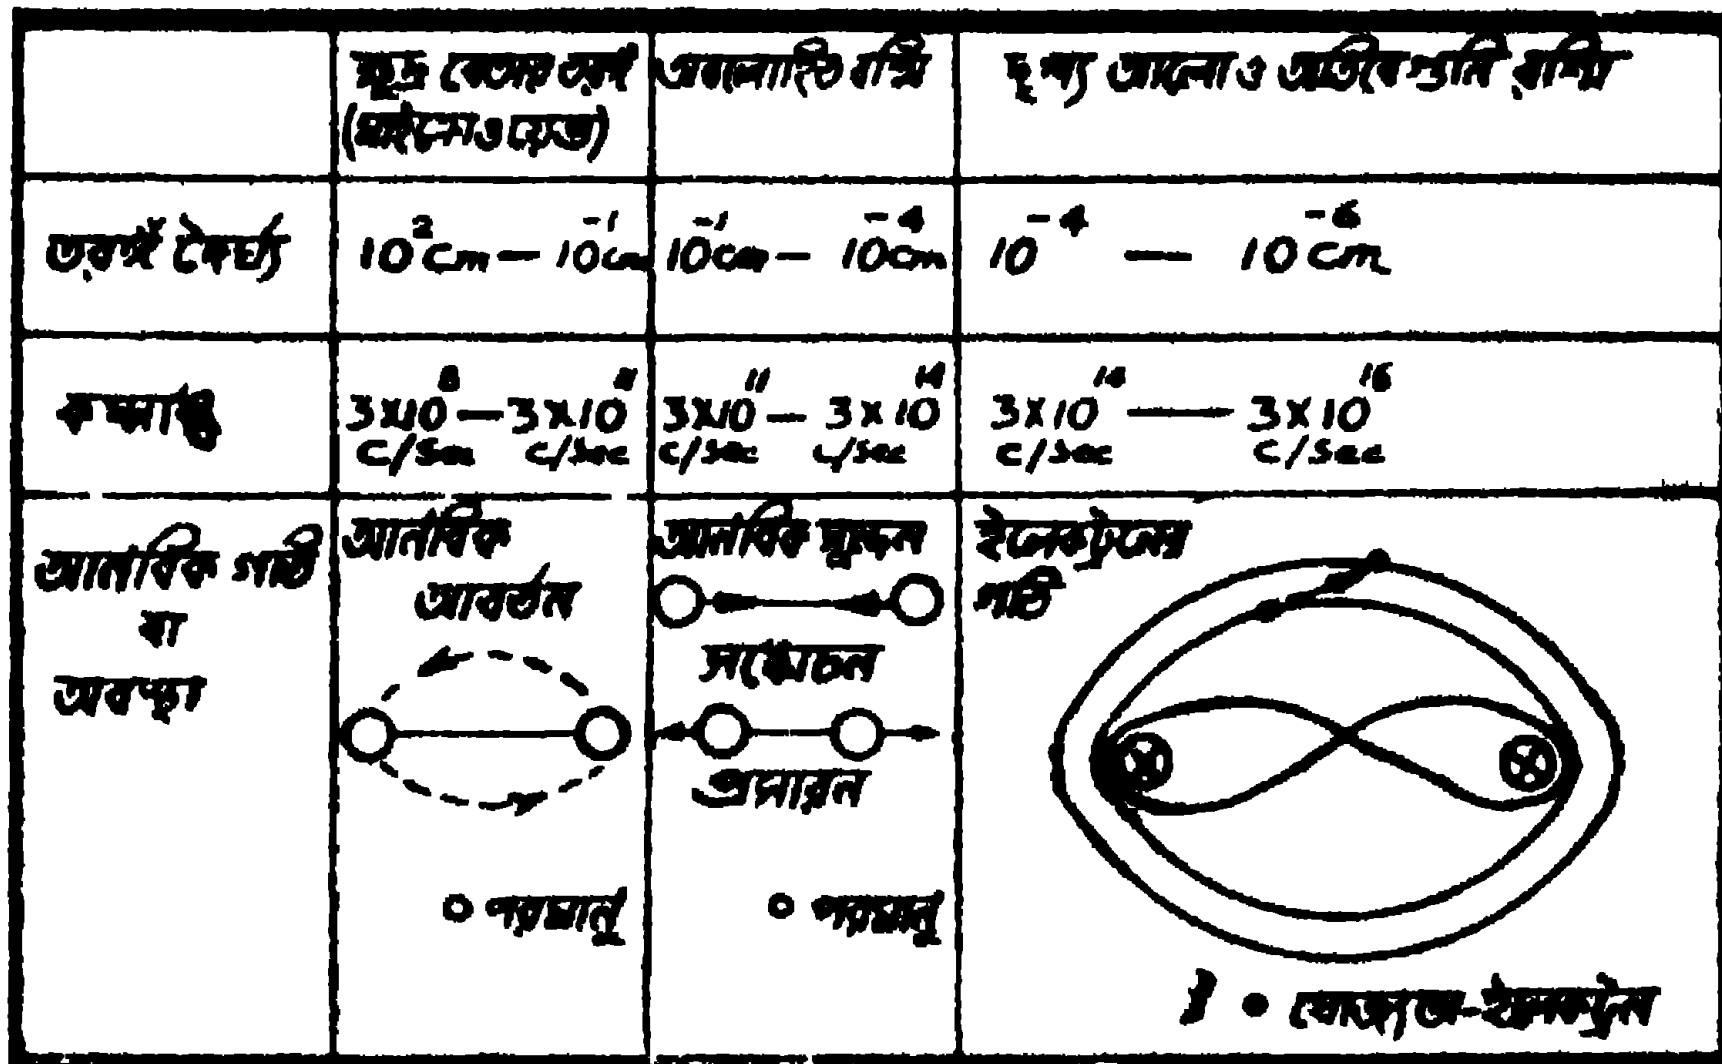 ক্ষুদ্র বেতার তরঙ্গ
(মাইক্রোওয়েভ)
অবলোহিত রশ্মি
দৃশ্য আলো ও অতিবেগুনি রশ্মি
তরঙ্গ দৈর্ঘ্য
10²cm — 10⁻¹cm
10⁻¹cm — 10⁻⁴cm
10⁻⁴ — 10⁻⁶cm
কম্পাঙ্ক
3x10⁸ — 3x10¹¹
c/sec c/sec
3x10¹¹ — 3x10¹⁴
c/sec c/sec
3x10¹⁴ — 3x10¹⁶
c/sec c/sec
আনবিক গতি
বা
অবস্থা
আনবিক
আবর্তন
পরমানু
আনবিক স্পন্দন
সঙ্কোচন
প্রসারন
পরমানু
ইলেকট্রনের
গতি
যোজ্যতা-ইলেকট্রন